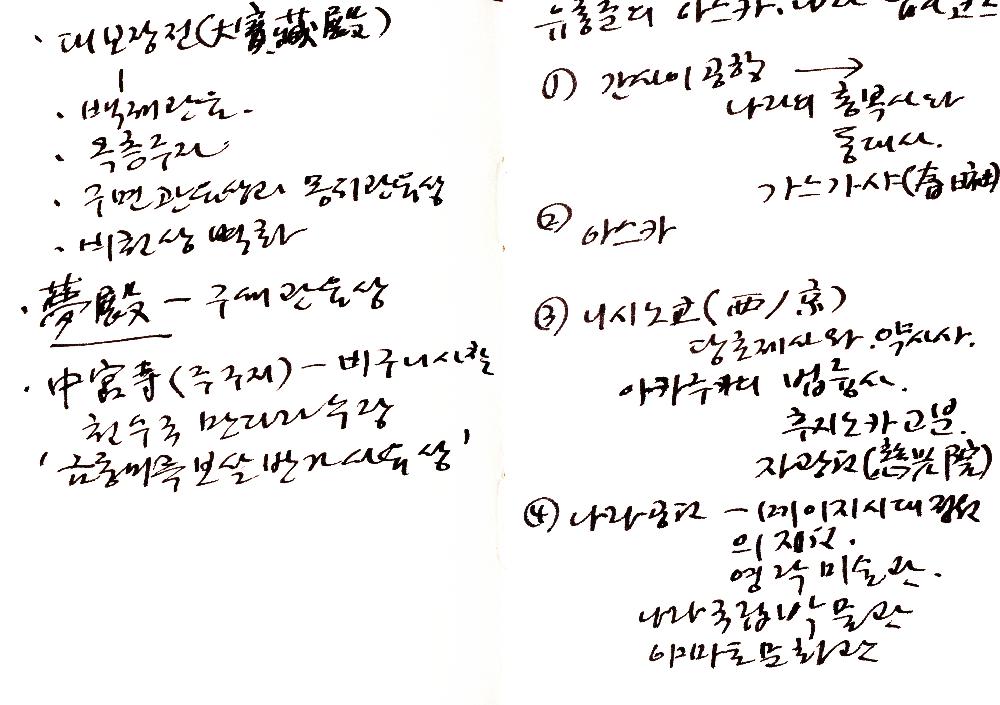 · 대보장전(大寶藏殿)
· 백제관음.
· 옥충주자
· 구면관음상과 몽치관음상
· 비천상 벽화
· 夢殿 - 구세관음상
· 中宮寺(주구지) - 비구니사찰
천수국 만다라수장
'금동미륵보살반가사유상'
유홍준의 아스카.나라 답사코스
① 간사이공항 →
나라의 흥복사와
동대사.
가스가샤(春日社)
② 아스카
③ 니시노쿄(西ノ京)
당초제사와 .약사사.
이카루카의 법륭사.
후지노카고분.
자광원(慈光院)
④ 나라공원 - (메이지시대 정원
의 제원.
영락미술관.
나라국립박물관
야마토문화관